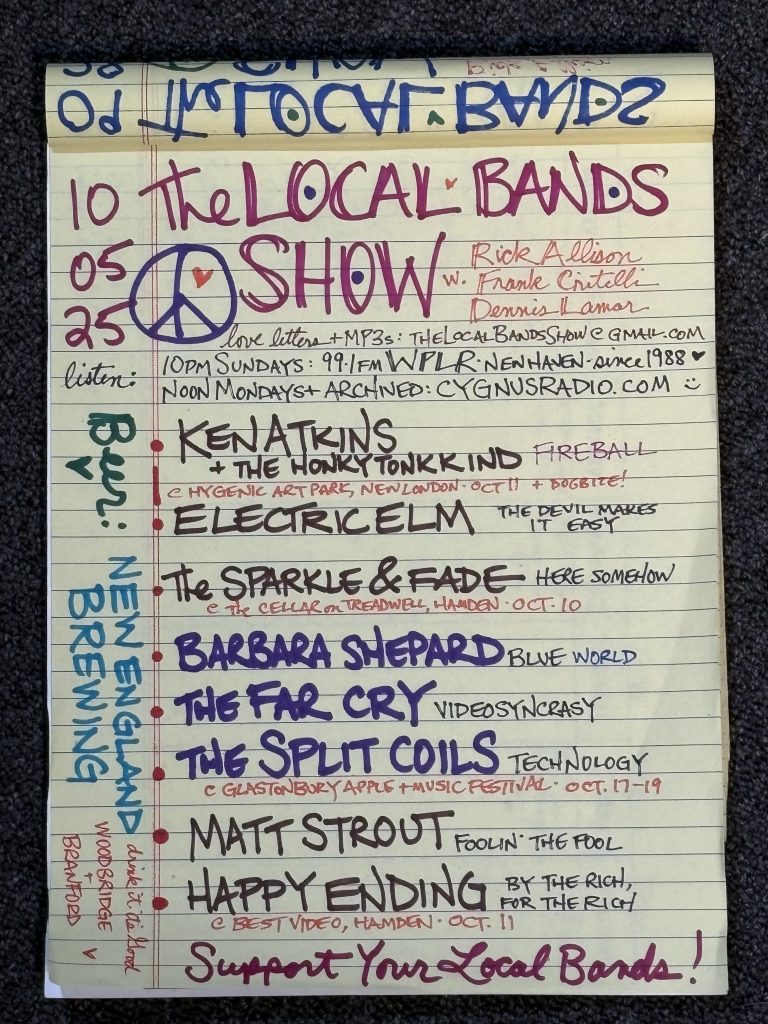 The LOCAL BANDS
10 The LOCAL BANDS
05 SHOW w. Rick Allison
Frank Critelli
25 Dennis Lamar
love letters + MP3s: THELOCALBANDSSHOW@GMAIL.COM
listen: 10PM SUNDAYS: 99.1FM WPLR·NEW HAVEN·since 1988 ♥
NOON MONDAYS + ARCHIVED: CYGNUSRADIO.COM
KEN ATKINS
+ THE HONKYTONK KIND FIREBALL
@ HYGENIC ART PARK, NEW LONDON · OCT 11 + DOGBITE!
ELECTRIC ELM THE DEVIL MAKES
IT EASY
The SPARKLE & FADE HERE SOMEHOW
@ The CELLAR on TREADWELL, HAMDEN · OCT. 10
BARBARA SHEPARD BLUE WORLD
THE FAR CRY VIDEOSYNCRASY
THE SPLIT COILS TECHNOLOGY
@ GLASTONBURY APPLE + MUSIC FESTIVAL · OCT. 17-19
MATT STROUT FOOLIN' THE FOOL
HAPPY ENDING BY THE RICH,
FOR THE RICH
@ BEST VIDEO, HAMDEN · OCT. 11
Support Your Local Bands!
Beer:
NEW ENGLAND
BREWING
drink it it's Good
WOODBRIDGE
+
BRANFORD